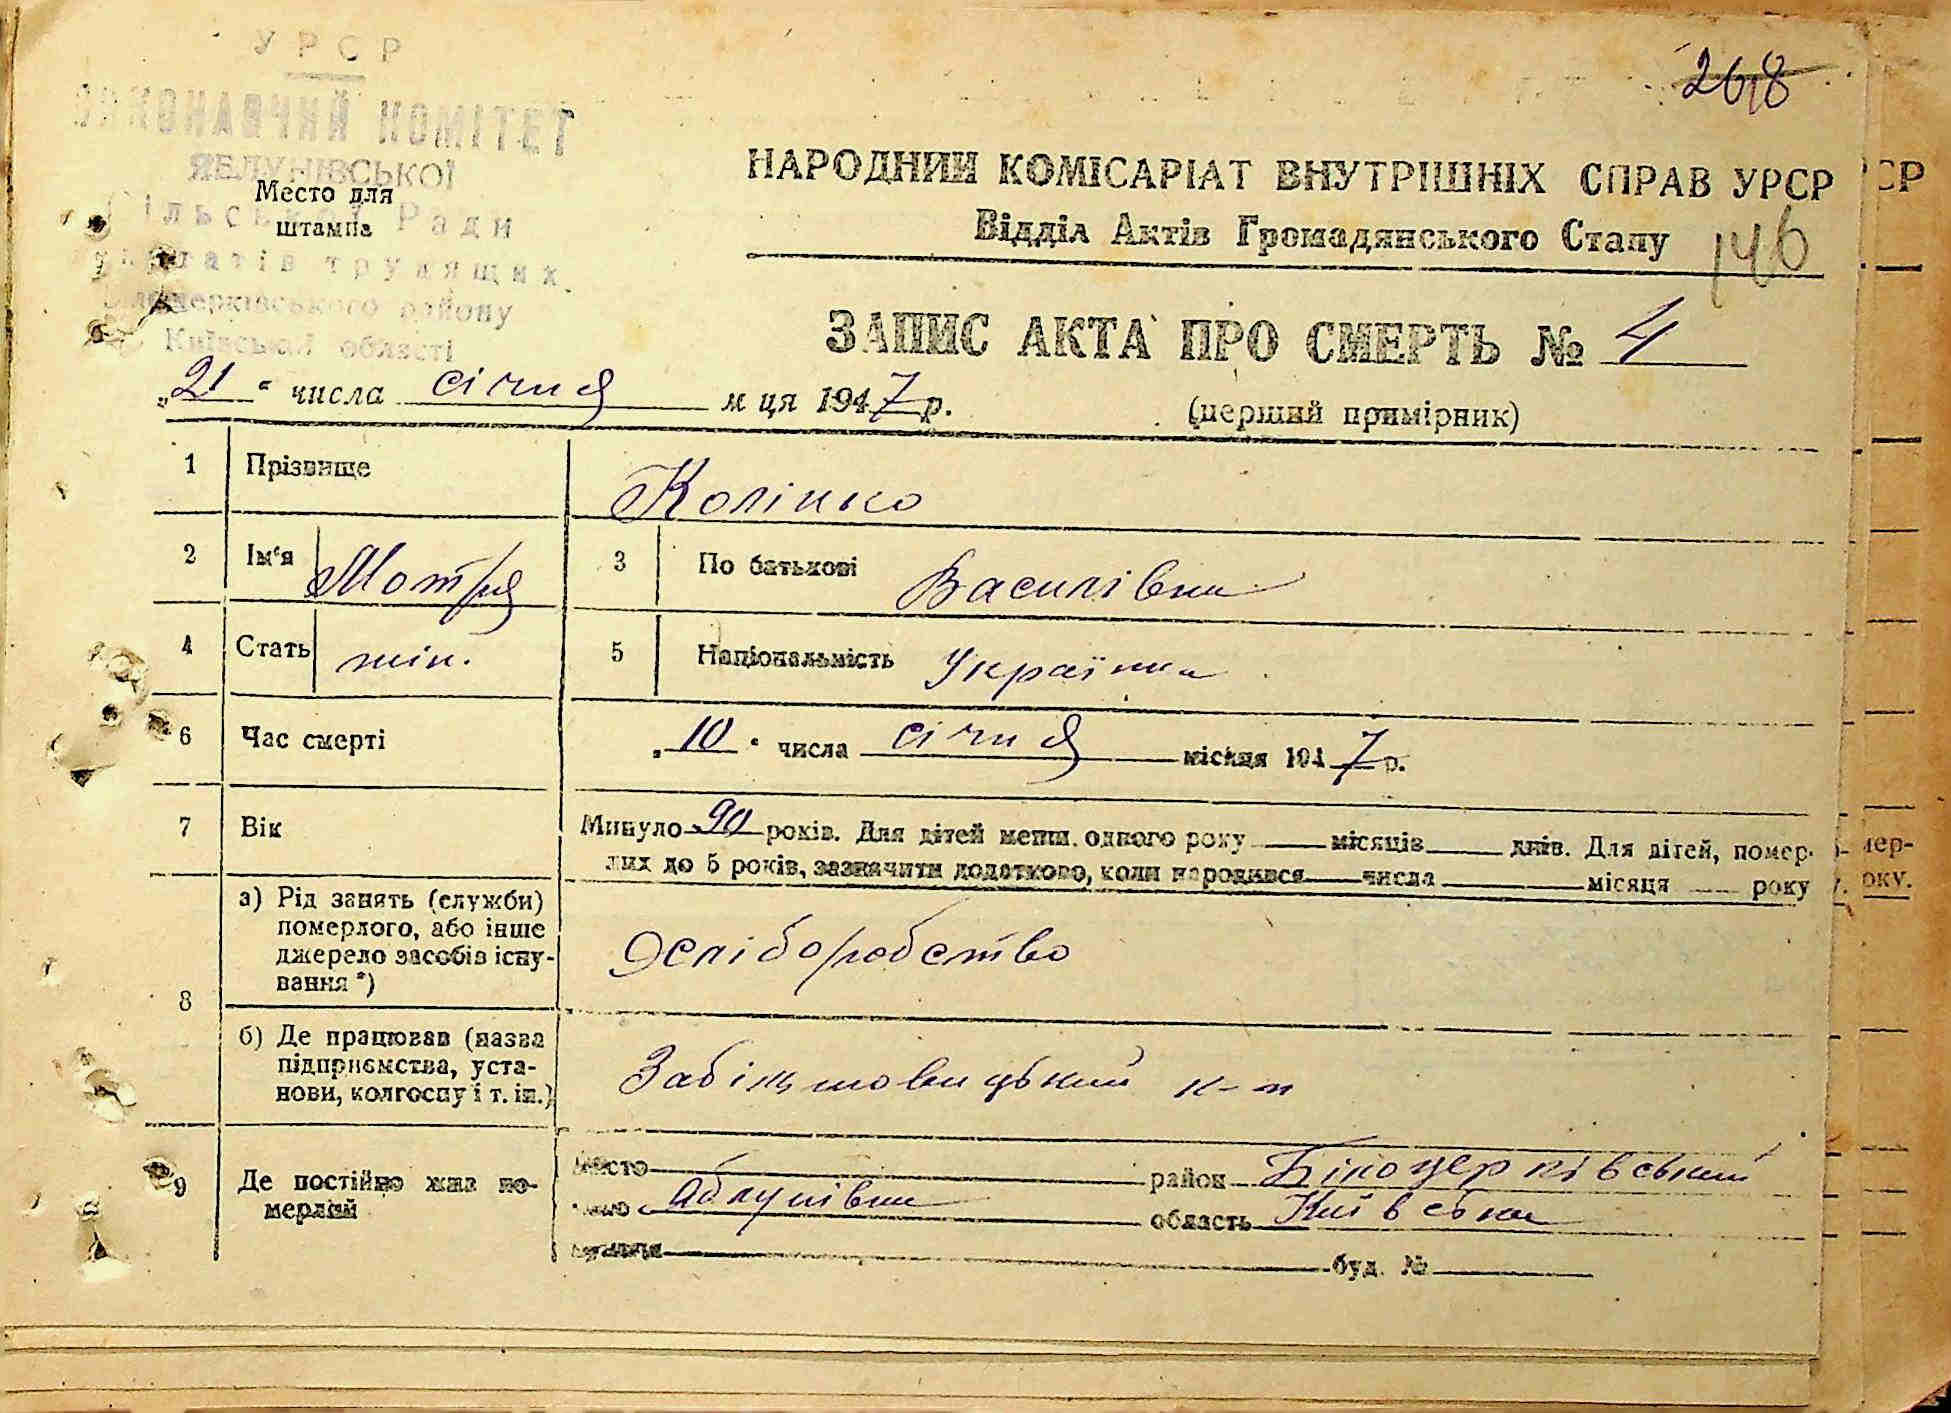 УРСР
ВИКОНАВЧИЙ КОМІТЕТ
ЯБЛУНІВСЬКОЇ
Сільської Ради
депутатів трудящих
Білоцерківського району
Київської області
Место для
штампа
268
НАРОДНИЙ КОМІСАРІАТ ВНУТРІШНІХ СПРАВ УРСР
Відділ Актів Громадянського Стану
146
ЗАПИС АКТА ПРО СМЕРТЬ № 4
„21“ числа січня м ця 1947 р.
(перший примірник)
1 Прізвище Колінко
2 Ім'я Мотря 3 По батькові Василівна
4 Стать жін. 5 Національність Українка
6 Час смерті „10“ числа січня місяця 1947 р.
7 Вік Минуло 90 років. Для дітей менш. одного року місяців днів. Для дітей, помер-
лих до 5 років, зазначити додатково, коли народився числа місяця року
8 а) Рід занять (служби)
померлого, або інше
джерело засобів існу-
вання *)
Хліборобство
б) Де працював (назва
підприємства, уста-
нови, колгоспу і т. ін.)
к-п
9 Де постійно жив по-
мерлий
місто район Білоцерківський
село Яблунівка область Київська
вулиця буд. №
СР
мер-
оку.